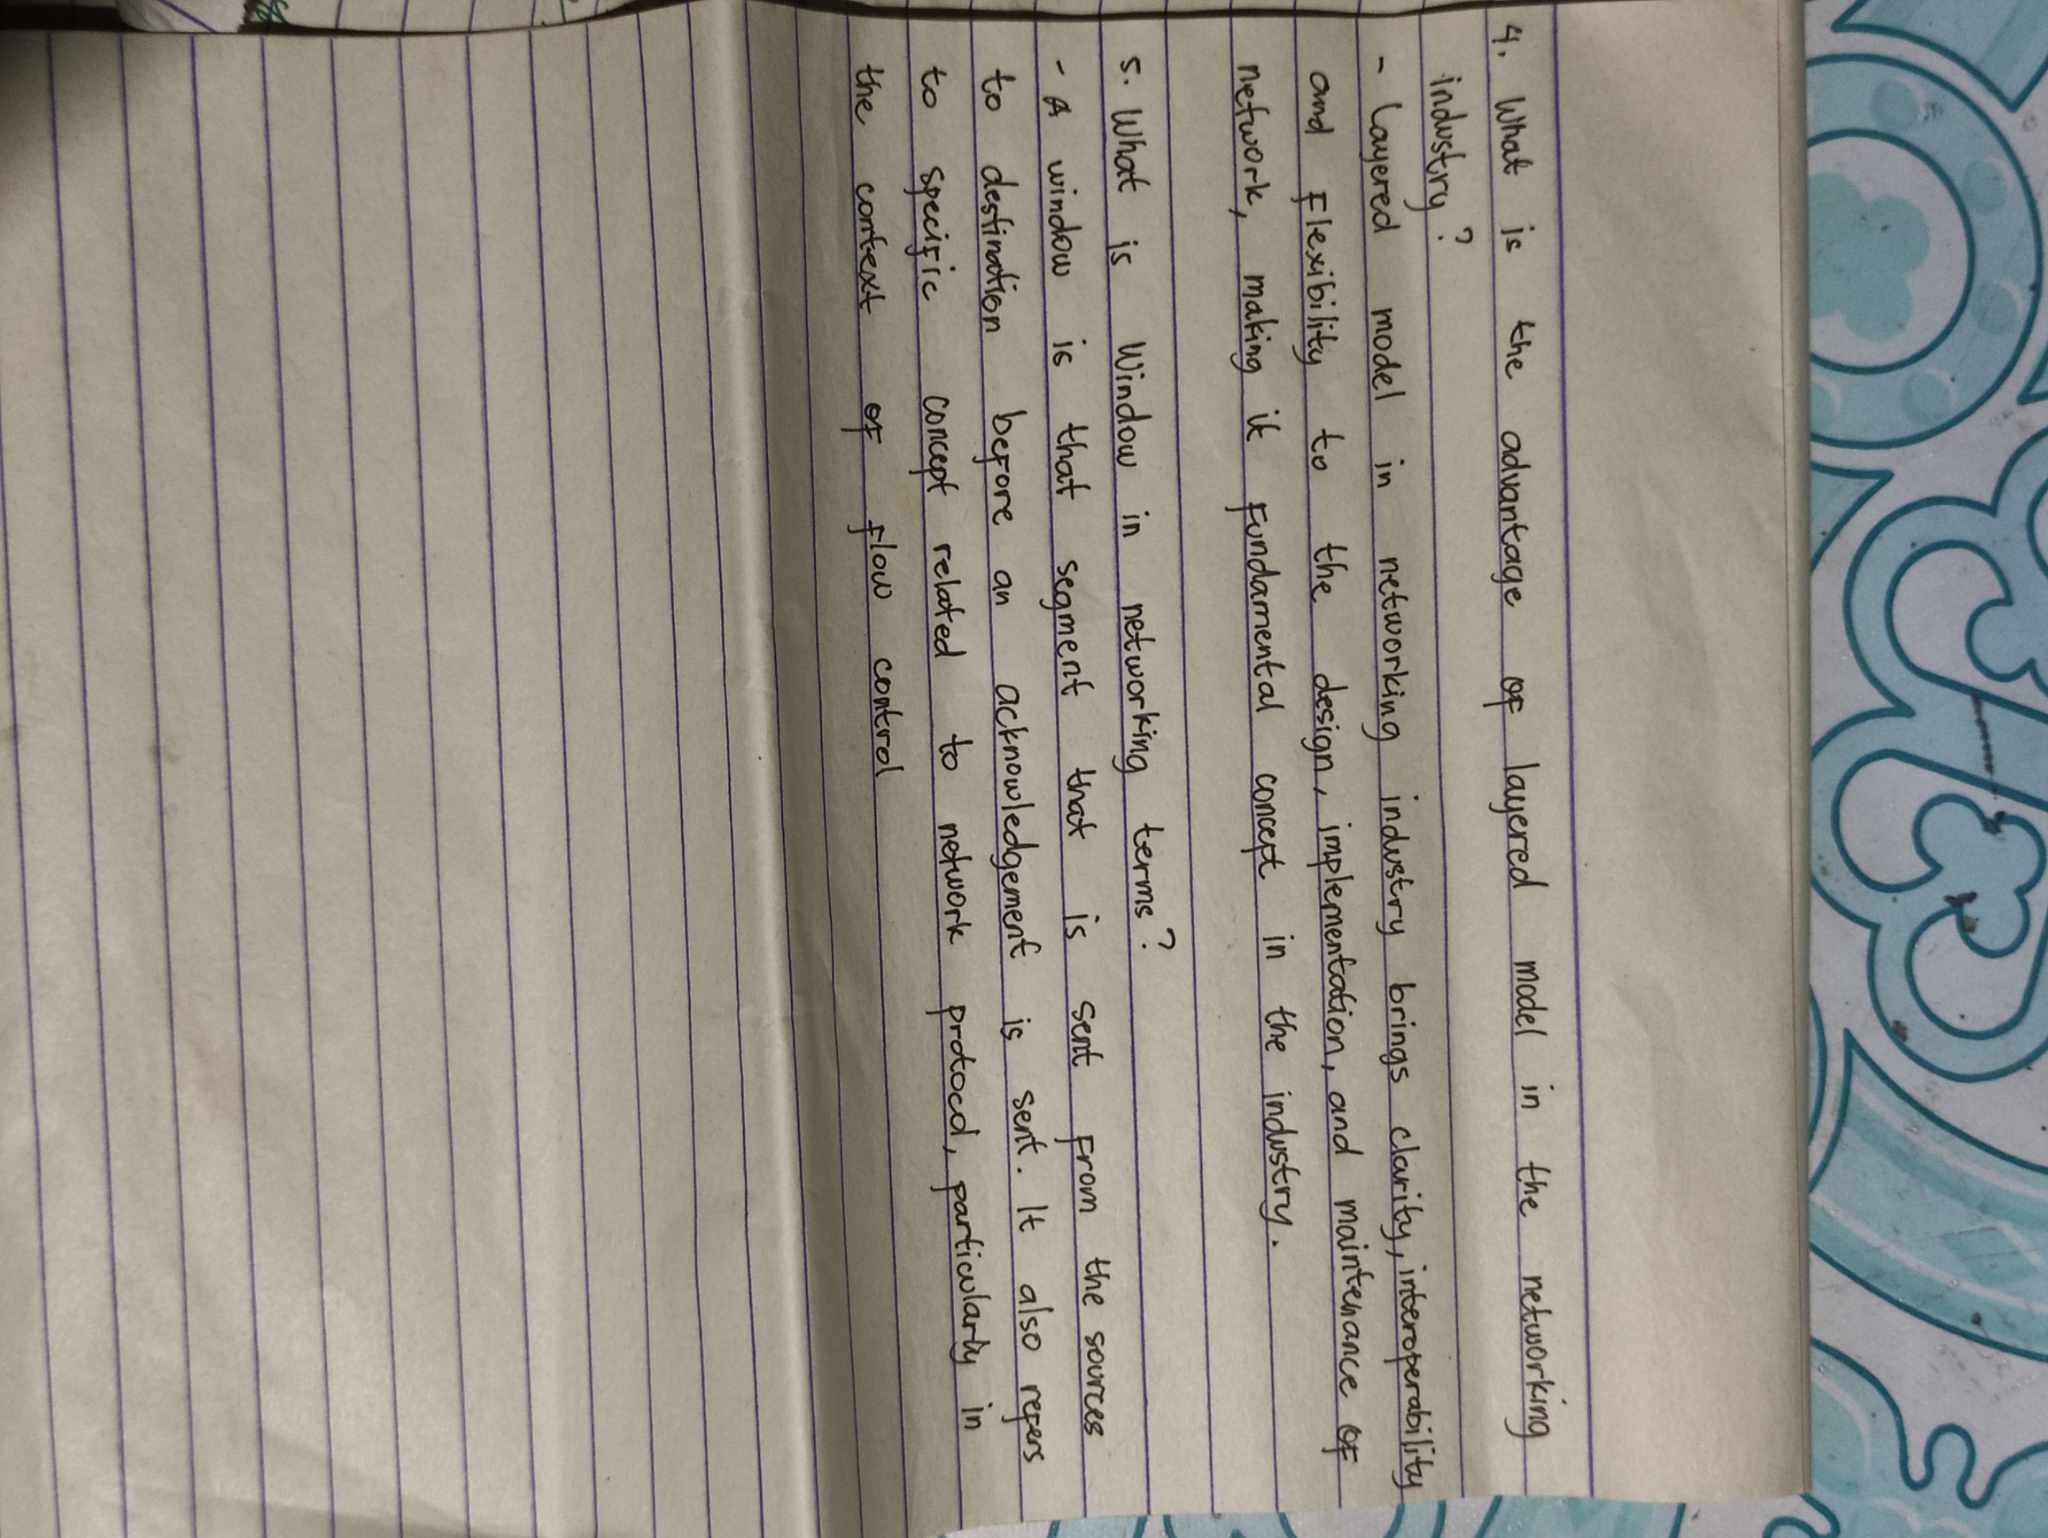 4. What is the advantage of layered model in the networking
industry?
- Layered model in networking industry brings clarity, interoperability
and Flexibility to the design, implementation, and maintenance of
network, making it Fundamental concept in the industry.
5. What is Window in networking terms?
- A window is that segment that is sent From the sources
to destination before an acknowledgement is sent. It also refers
to specific concept related to network protocol, particularly in
the context of flow control